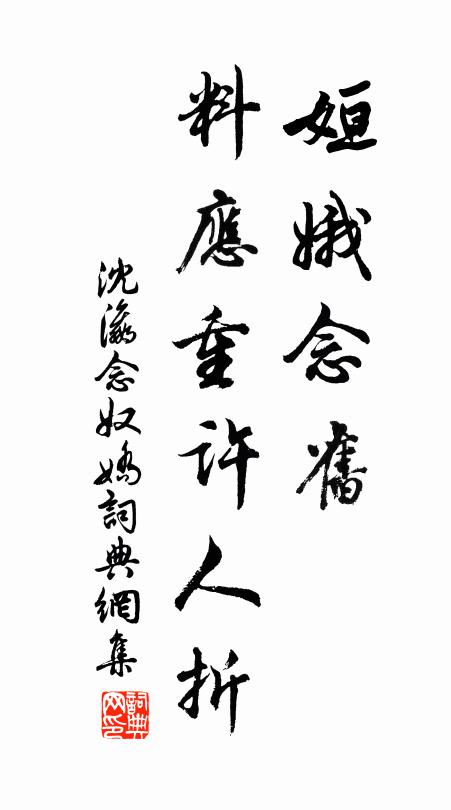 姮娥念舊
料應重許人折
沈瀛念奴嬌詞典網集
詞典网印